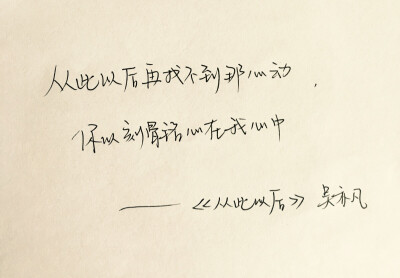 从此以后再找不到那心动，
你以刻骨铭心在我心中
——《从此以后》吴亦凡